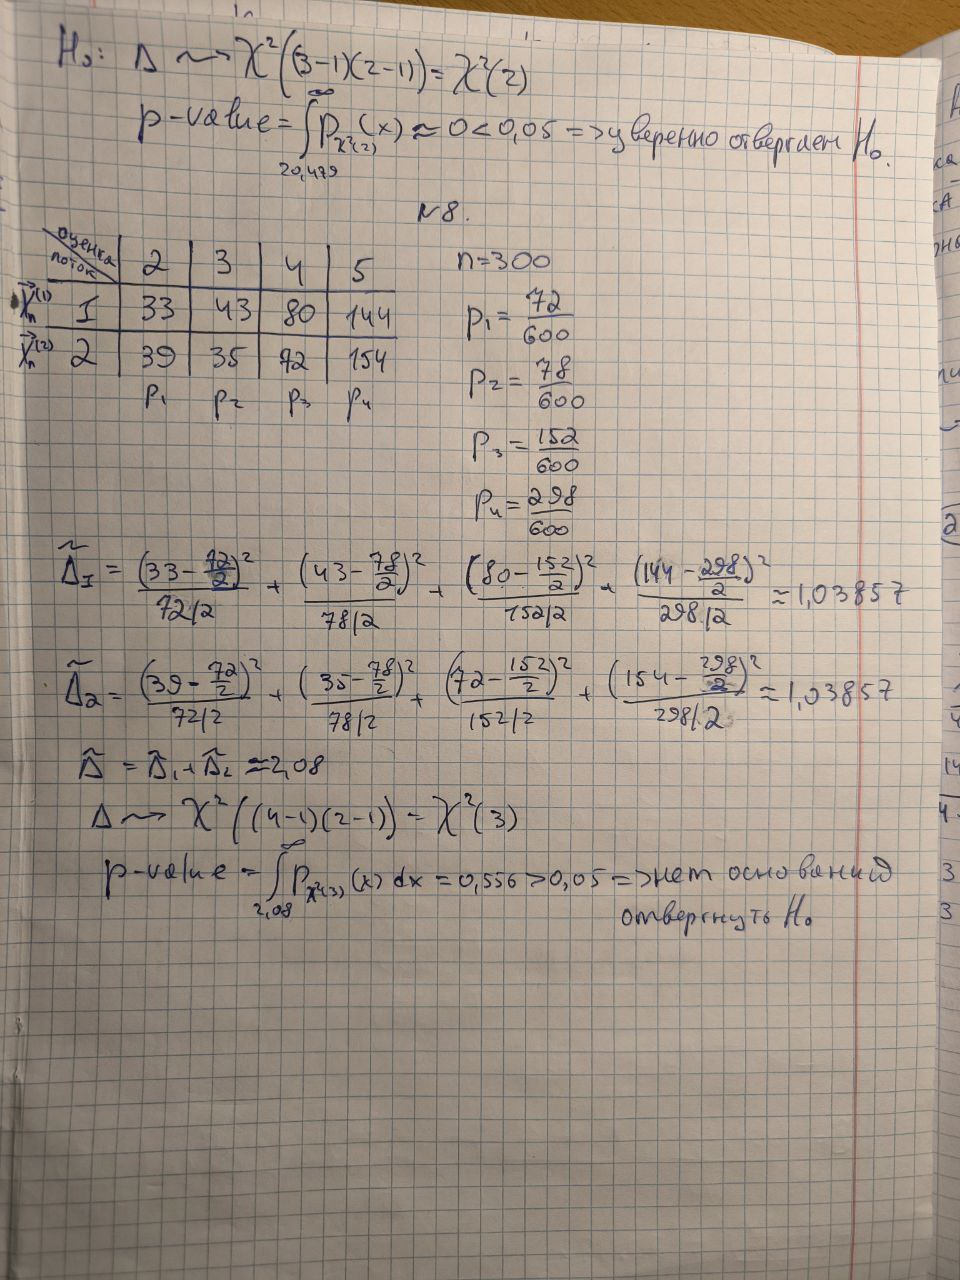 H₀: Δ ⇝ χ²((3-1)(2-1)) = χ²(2)
p-value = ∫_{20,479}^{∞} p_{χ²(2)}(x) ≈ 0 < 0,05 => уверенно отвергаем H₀.
№8.
оценка 2 3 4 5
поток
X⃗ₙ⁽¹⁾ 1 33 43 80 144
X⃗ₙ⁽²⁾ 2 39 35 72 154
p₁ p₂ p₃ p₄
n=300
p₁ = 72/600
p₂ = 78/600
p₃ = 152/600
p₄ = 298/600
Δ̃₁ = (33 - 72/2)²/(72/2) + (43 - 78/2)²/(78/2) + (80 - 152/2)²/(152/2) + (144 - 298/2)²/(298/2) ≈ 1,03857
Δ̃₂ = (39 - 72/2)²/(72/2) + (35 - 78/2)²/(78/2) + (72 - 152/2)²/(152/2) + (154 - 298/2)²/(298/2) ≈ 1,03857
Δ̃ = Δ̃₁ + Δ̃₂ ≈ 2,08
Δ ⇝ χ²((4-1)(2-1)) = χ²(3)
p-value = ∫_{2,08}^{∞} p_{χ²(3)}(x) dx = 0,556 > 0,05 => нет оснований
отвергнуть H₀